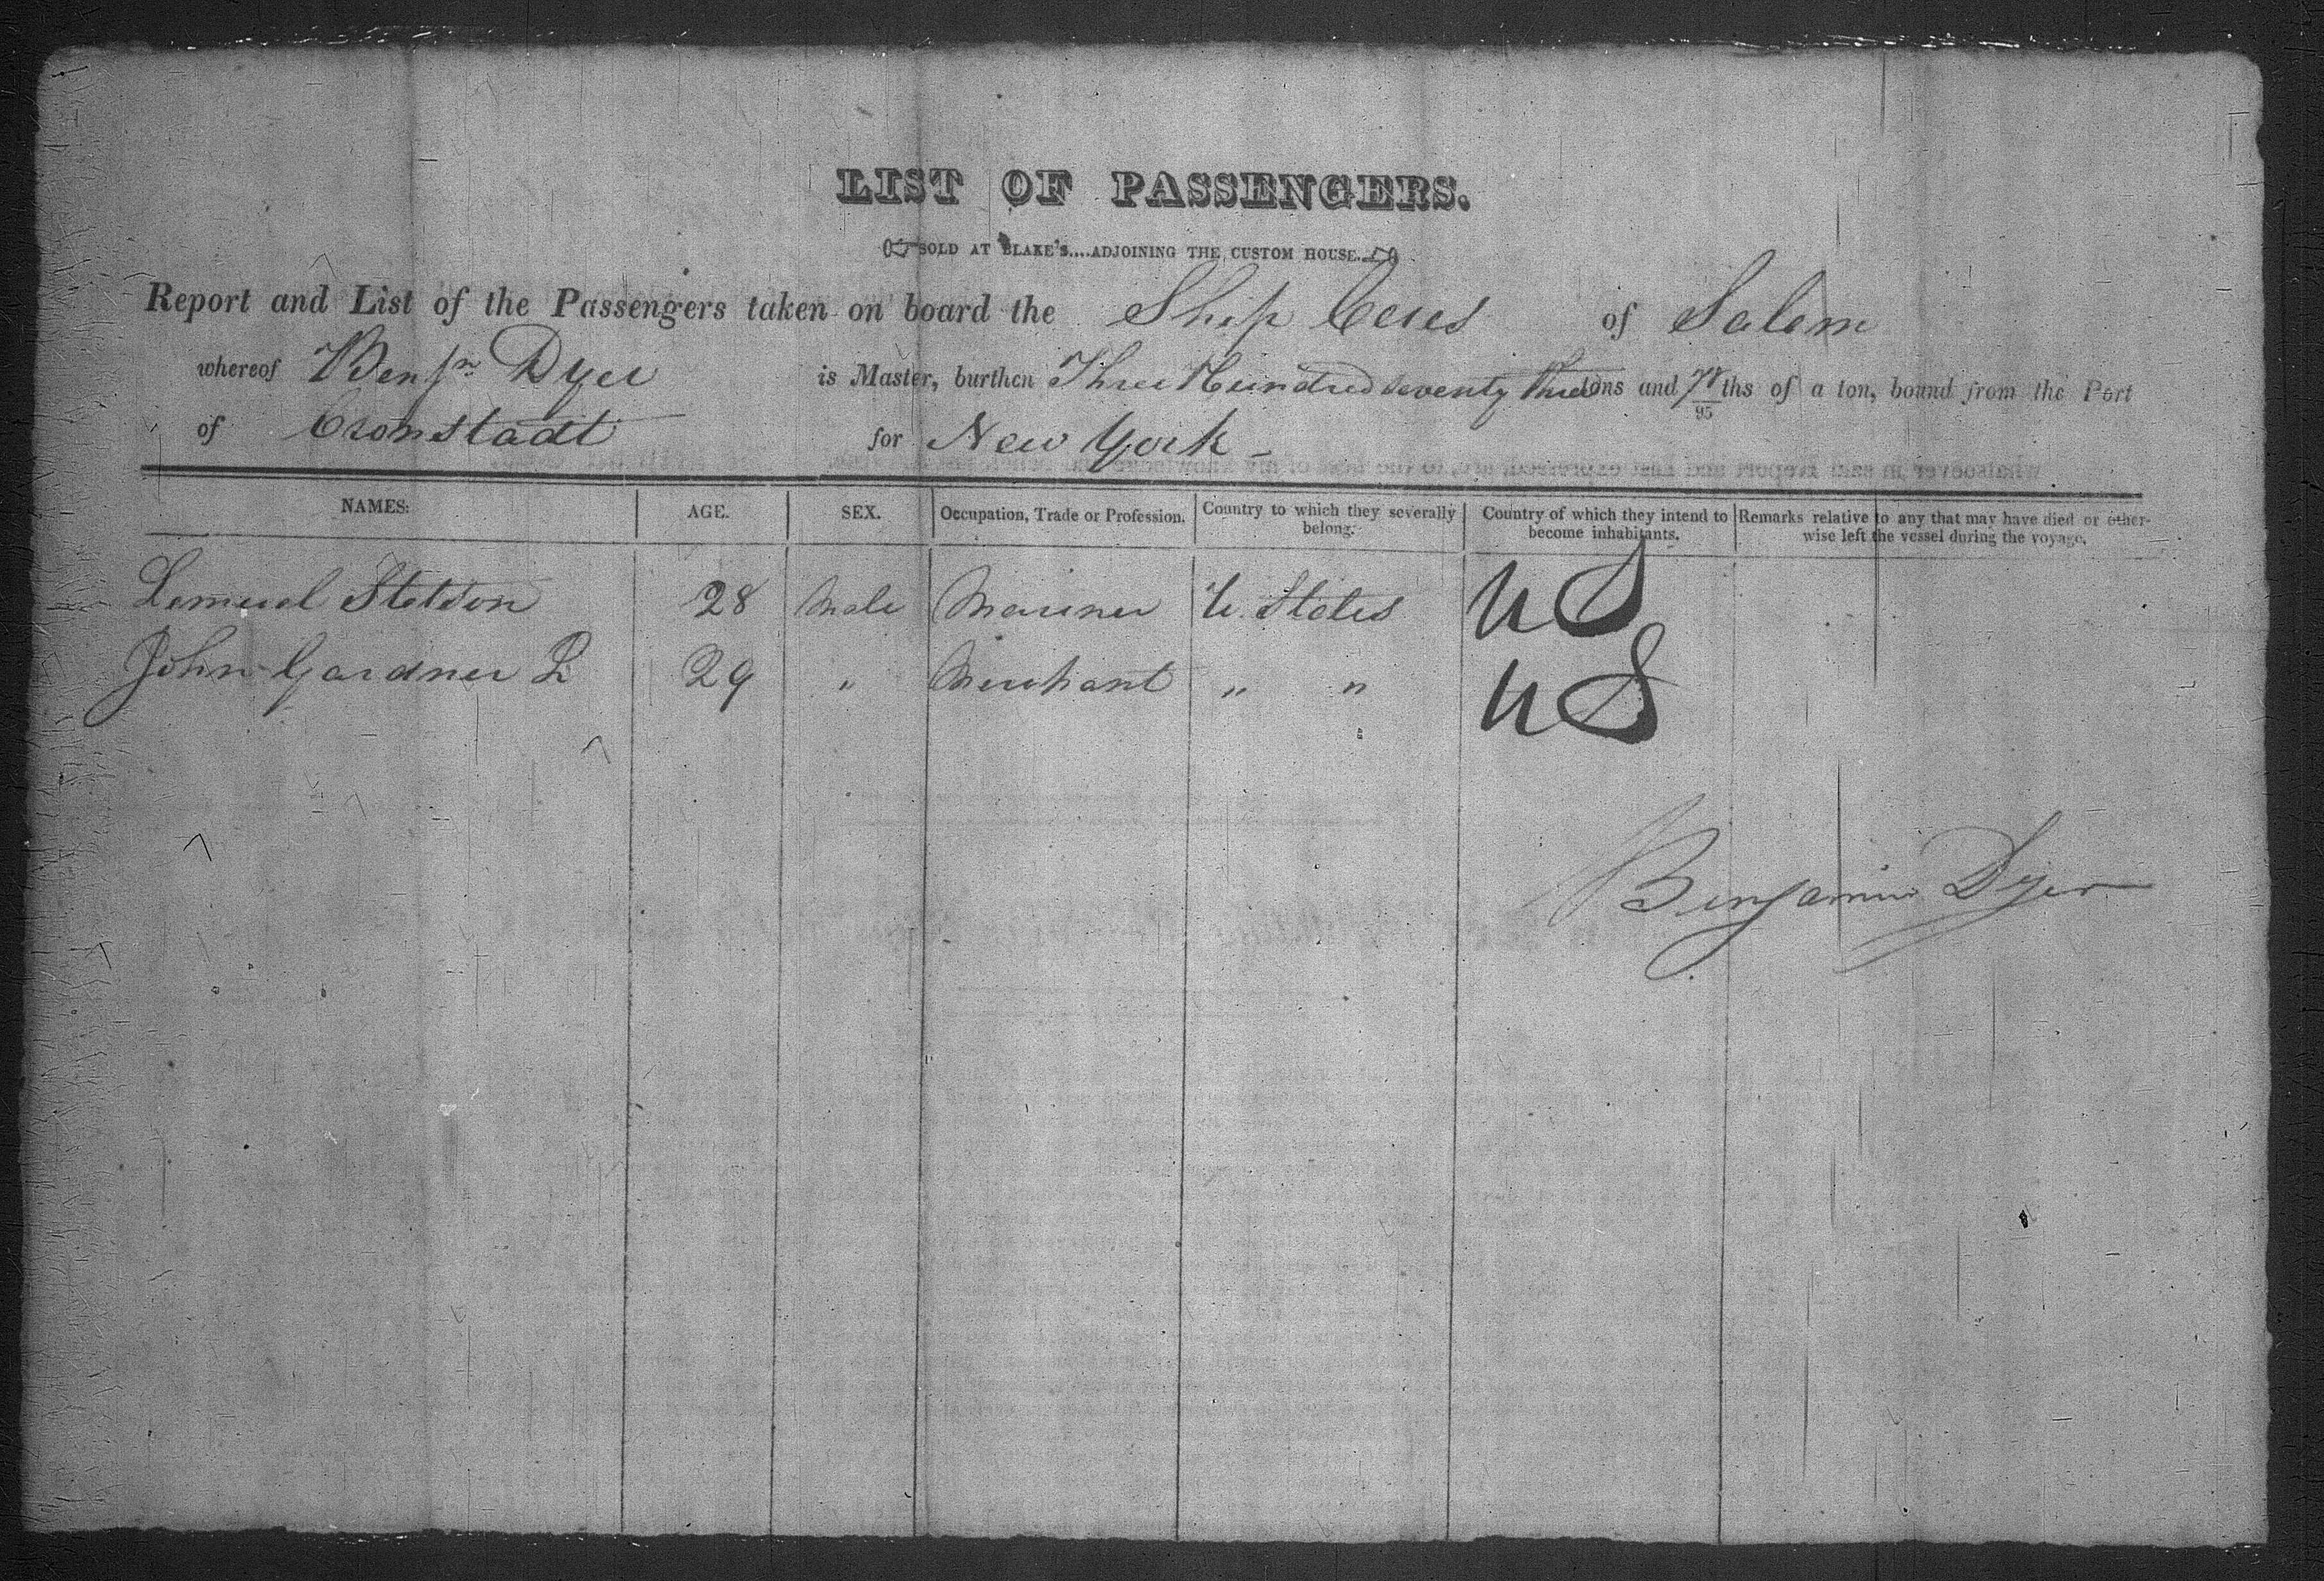 LIST OF PASSENGERS.
SOLD AT BLAKE'S....ADJOINING THE CUSTOM HOUSE.
Report and List of the Passengers taken on board the Ship Ceres of Salem
whereof Benjn Dyer is Master, burthen Three Hundred Seventy Three tons and 78/95 ths of a ton, bound from the Port
of Cronstadt for New York -
NAMES. AGE. SEX. Occupation, Trade or Profession. Country to which they severally belong. Country of which they intend to become inhabitants. Remarks relative to any that may have died or otherwise left the vessel during the voyage.
Lemuel Stetson 28 Male Mariner U. States US
John Gardner 29 " Merchant " " US
Benjamin Dyer